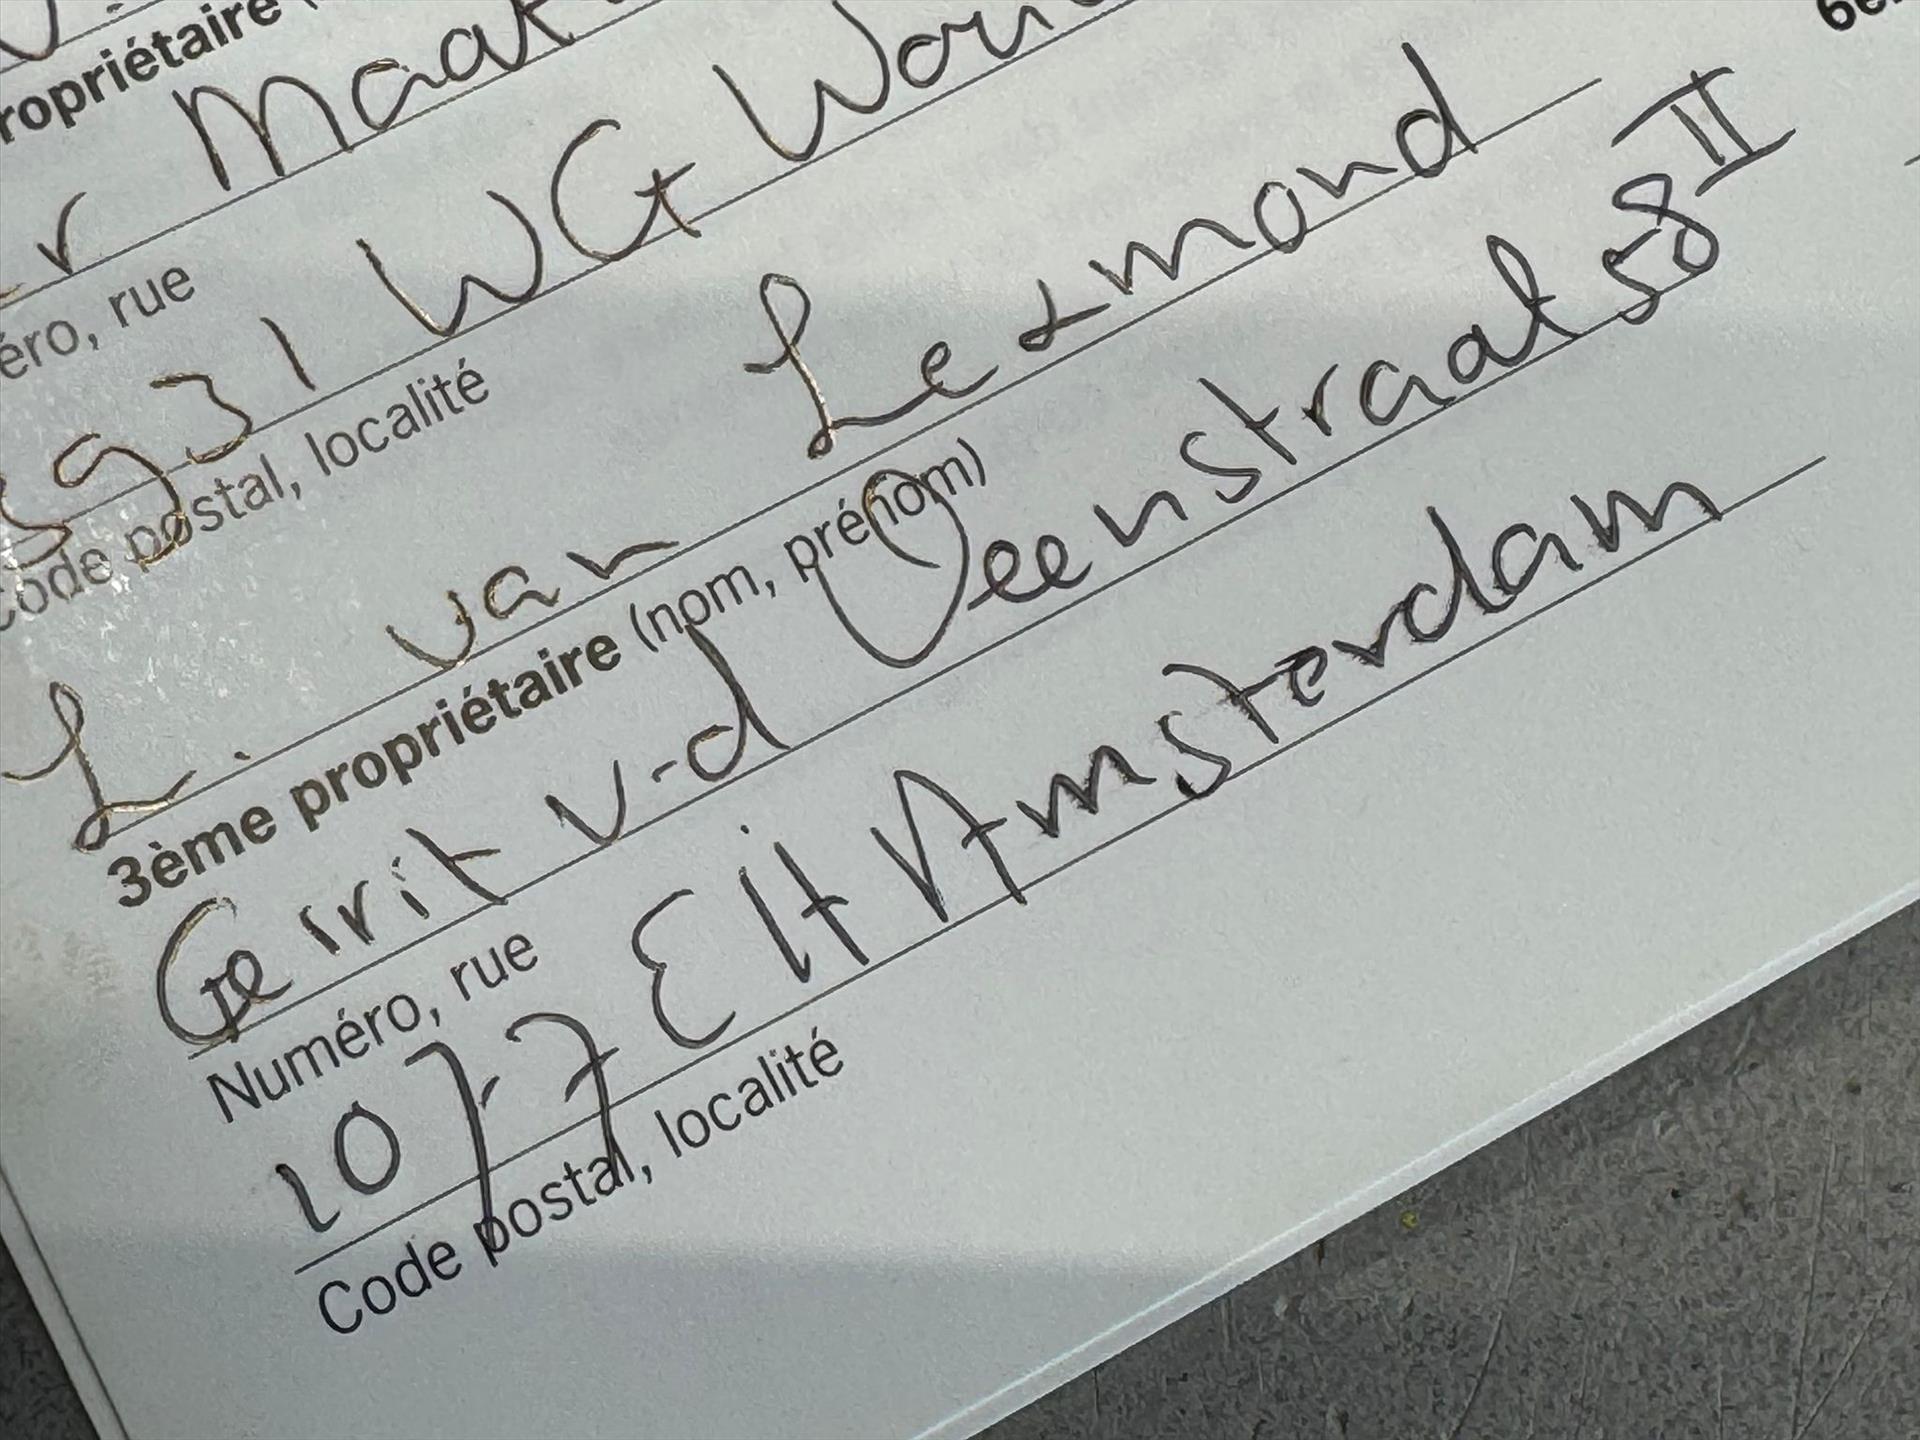 propriétaire
Maat
Numéro, rue
931 WG
Code postal, localité
L. van Lexmond
3ème propriétaire (nom, prénom)
Gerrit v-d Veenstraat 58 II
Numéro, rue
1077 EH Amsterdam
Code postal, localité